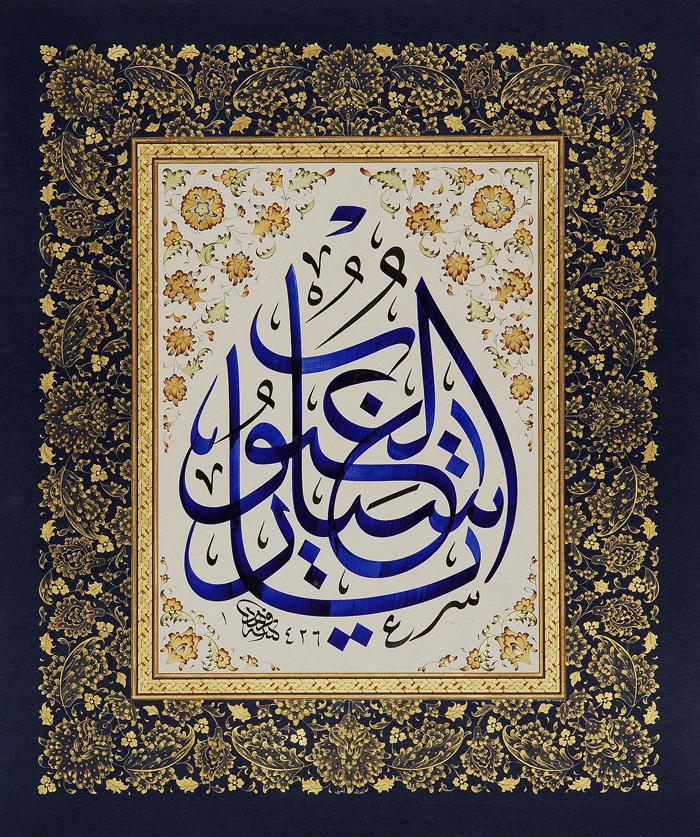 يا ستار العيوب
كتبه
١٤٢٦